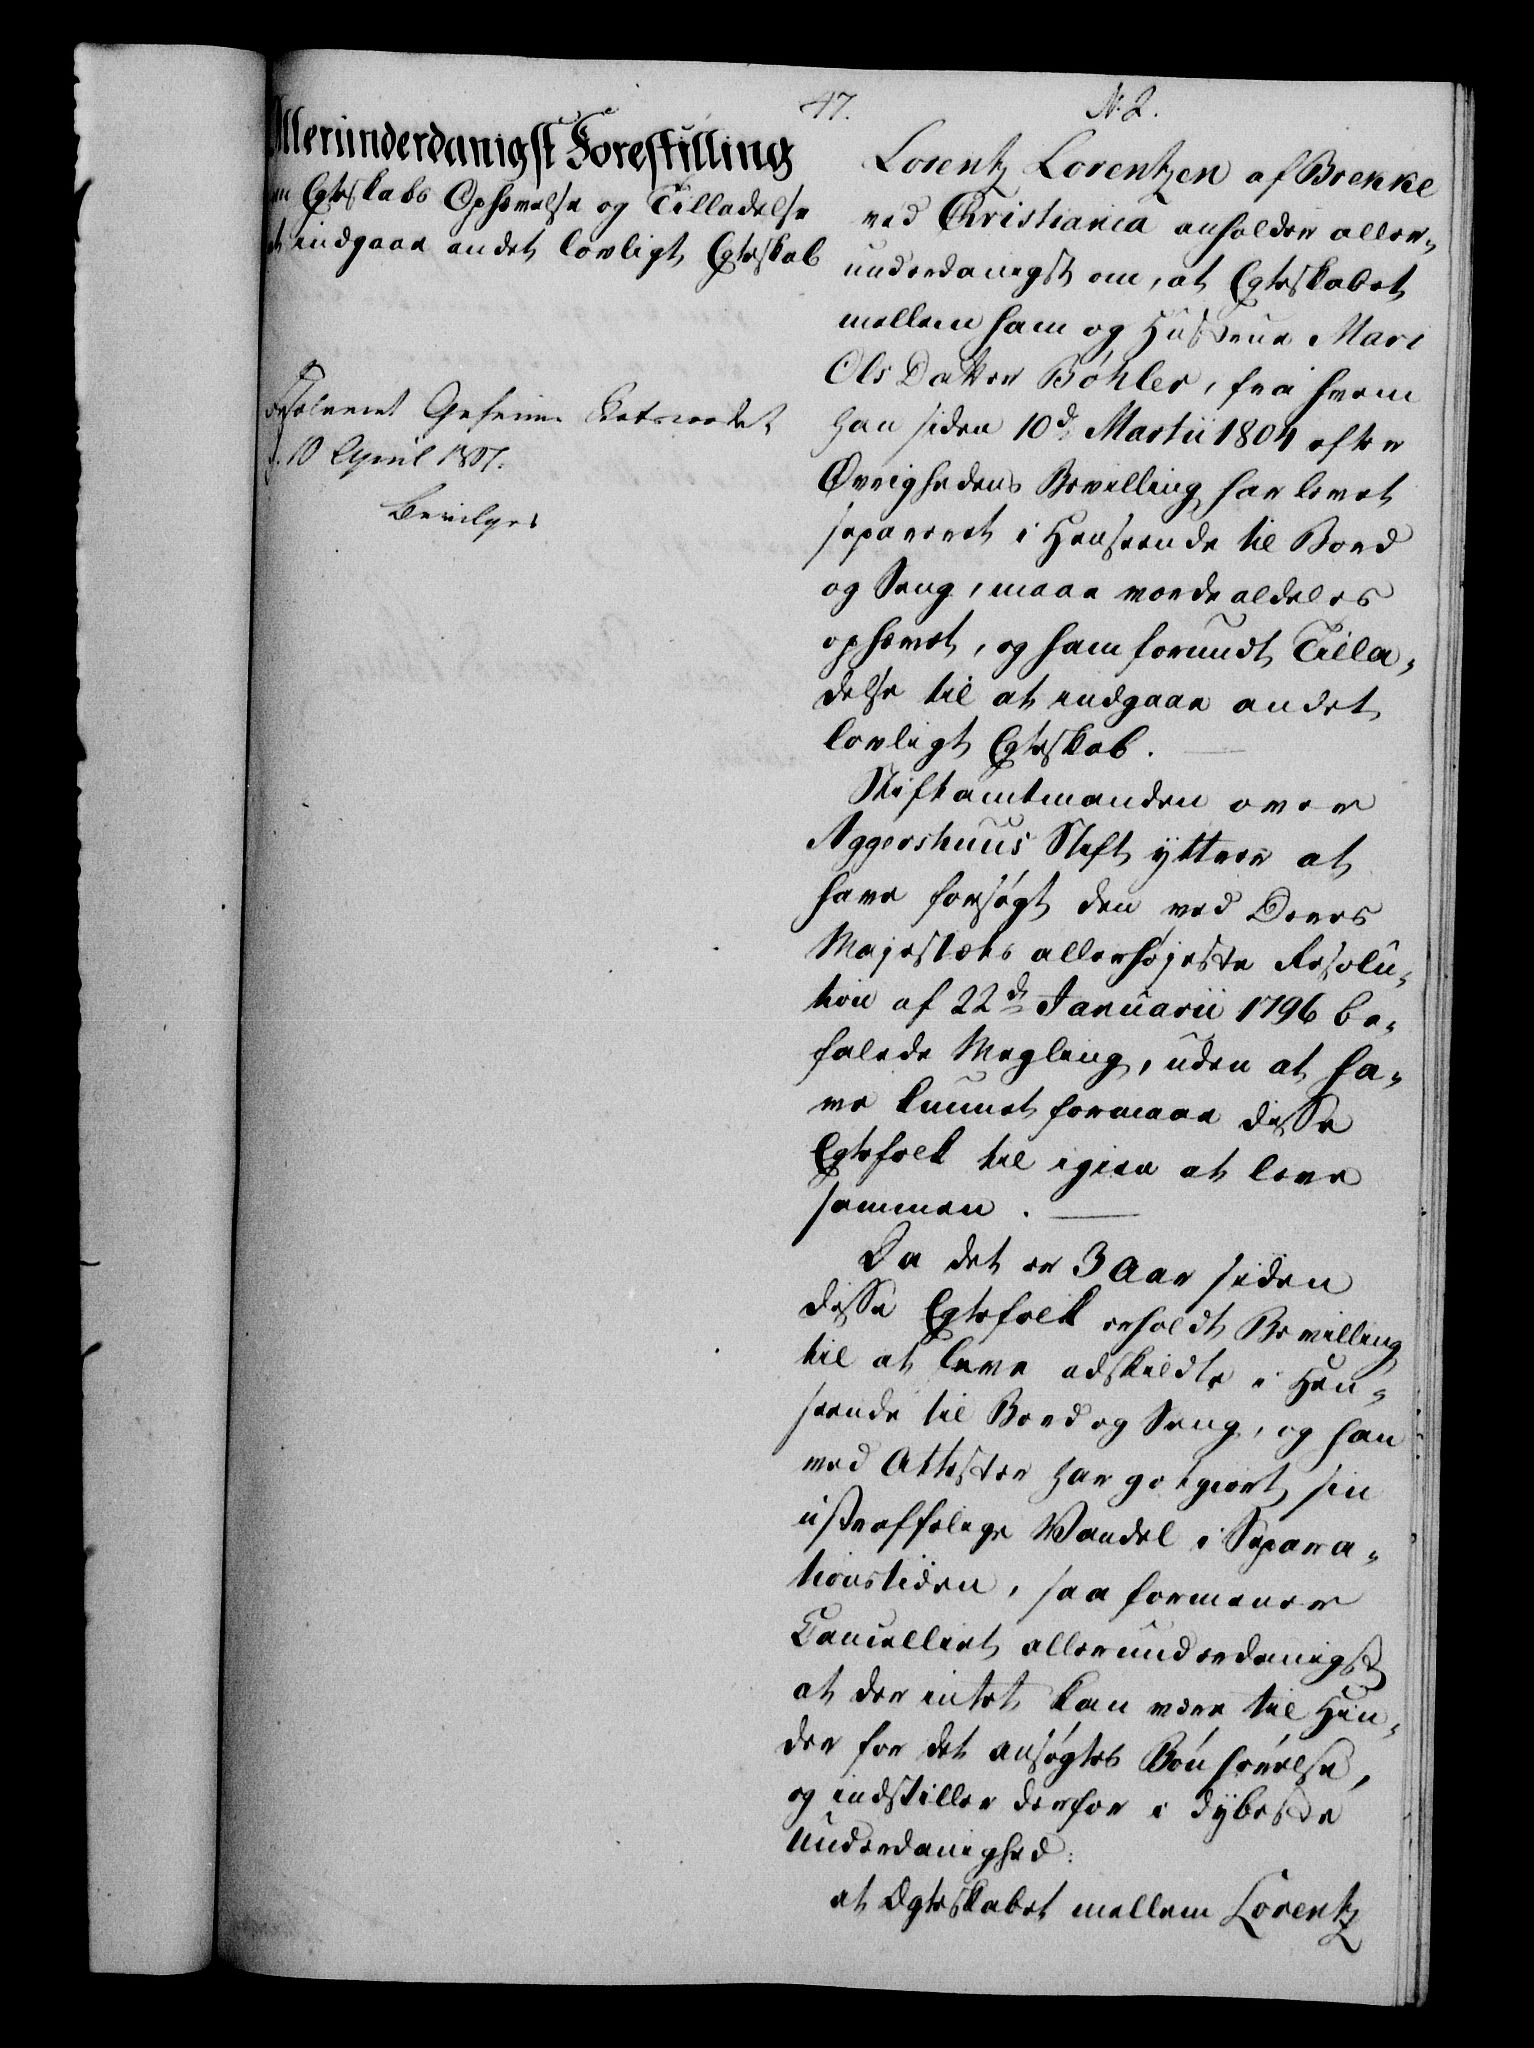 47.
N. 2.
Allerunderdanigst Forestilling
om Egteskabs Ophævelse og Tilladelse
at indgaae andet lovligt Egteskab
Resolveret Geheime Statsraadet
d. 10 April 1807.
Bevilges
Lorentz Lorentzen af Brekke
ved Christiania anholder aller-
underdanigst om, at Egteskabet
mellem ham og Hustrue Mari
Ols Datter Böhler, fra hvem
han siden 10de Martii 1804 efter
Øvrighedens Bevilling har levet
separeret i Henseende til Bord
og Seng, maae vorde aldeles
ophævet, og ham forundt Tilla-
delse til at indgaae andet
lovligt Egteskab.
Stiftamtmanden over
Aggershuus Stift yttrer at
have forsøgt den ved Deres
Majestæts allerhøjeste Resolu-
tion af 22de Januarii 1796 be-
falede Megling, uden at ha-
ve kunnet formaae disse
Egtefolk til igien at leve
sammen.
Da det er 3 Aar siden
disse Egtefolk erholdt Bevilling
til at leve adskildte i Hen-
seende til Bord og Seng, og han
med Attester har godtgiort sin
ustraffelige Vandel i Separa-
tionstiden, saa formener
Cancelliet allerunderdanigst
at der intet kan være til Hin-
der for det ansøgtes Bönhörelse,
og indstiller derfor i dybeste
Underdanighed:
at Egteskabet mellem Lorentz